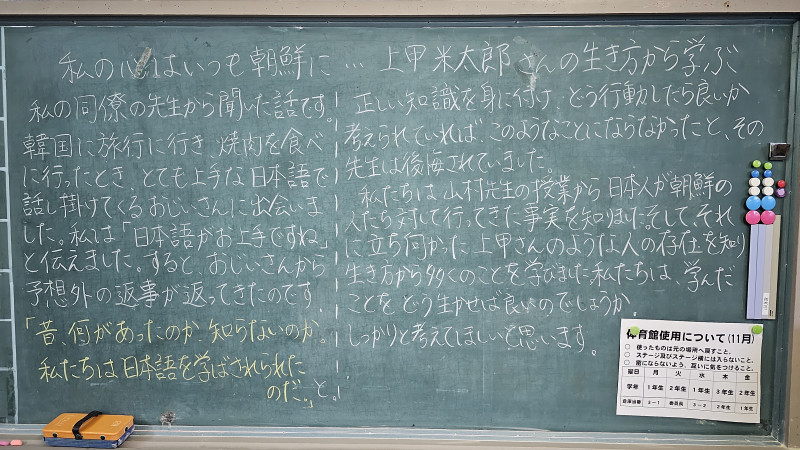 私の心はいつも朝鮮に … 上甲米太郎さんの生き方から学ぶ
私の同僚の先生から聞いた話です。
韓国に旅行に行き、焼肉を食べ
に行ったとき、とても上手な日本語で
話し掛けてくるおじいさんに出会いま
した。私は「日本語がお上手ですね」
と伝えました。すると、おじいさんから
予想外の返事が返ってきたのです。
「昔、何があったのか知らないのか。
私たちは日本語を学ばされられた
のだ。」と。
正しい知識を身に付け、どう行動したら良いか
考えられていれば、このようなことにならなかったと、その
先生は後悔されていました。
私たちは山村先生の授業から日本人が朝鮮の
人たち対して行ってきた事実を知りました。そして、それ
に立ち向かった上甲さんのような人の存在を知り
生き方から多くのことを学びました。私たちは、学んだ
ことをどう生かせば良いのでしょうか。
しっかりと考えてほしいと思います。
体育館使用について(11月)
○ 使ったものは元の場所へ戻すこと。
○ ステージ及びステージ横には入らないこと。
○ 密にならないよう、互いに気をつけること。
曜日 月 火 水 木 金
学年 1年生 2年生 1年生 3年生 2年生
倉庫当番 3-1 委員長 3-2 2年生 1年生